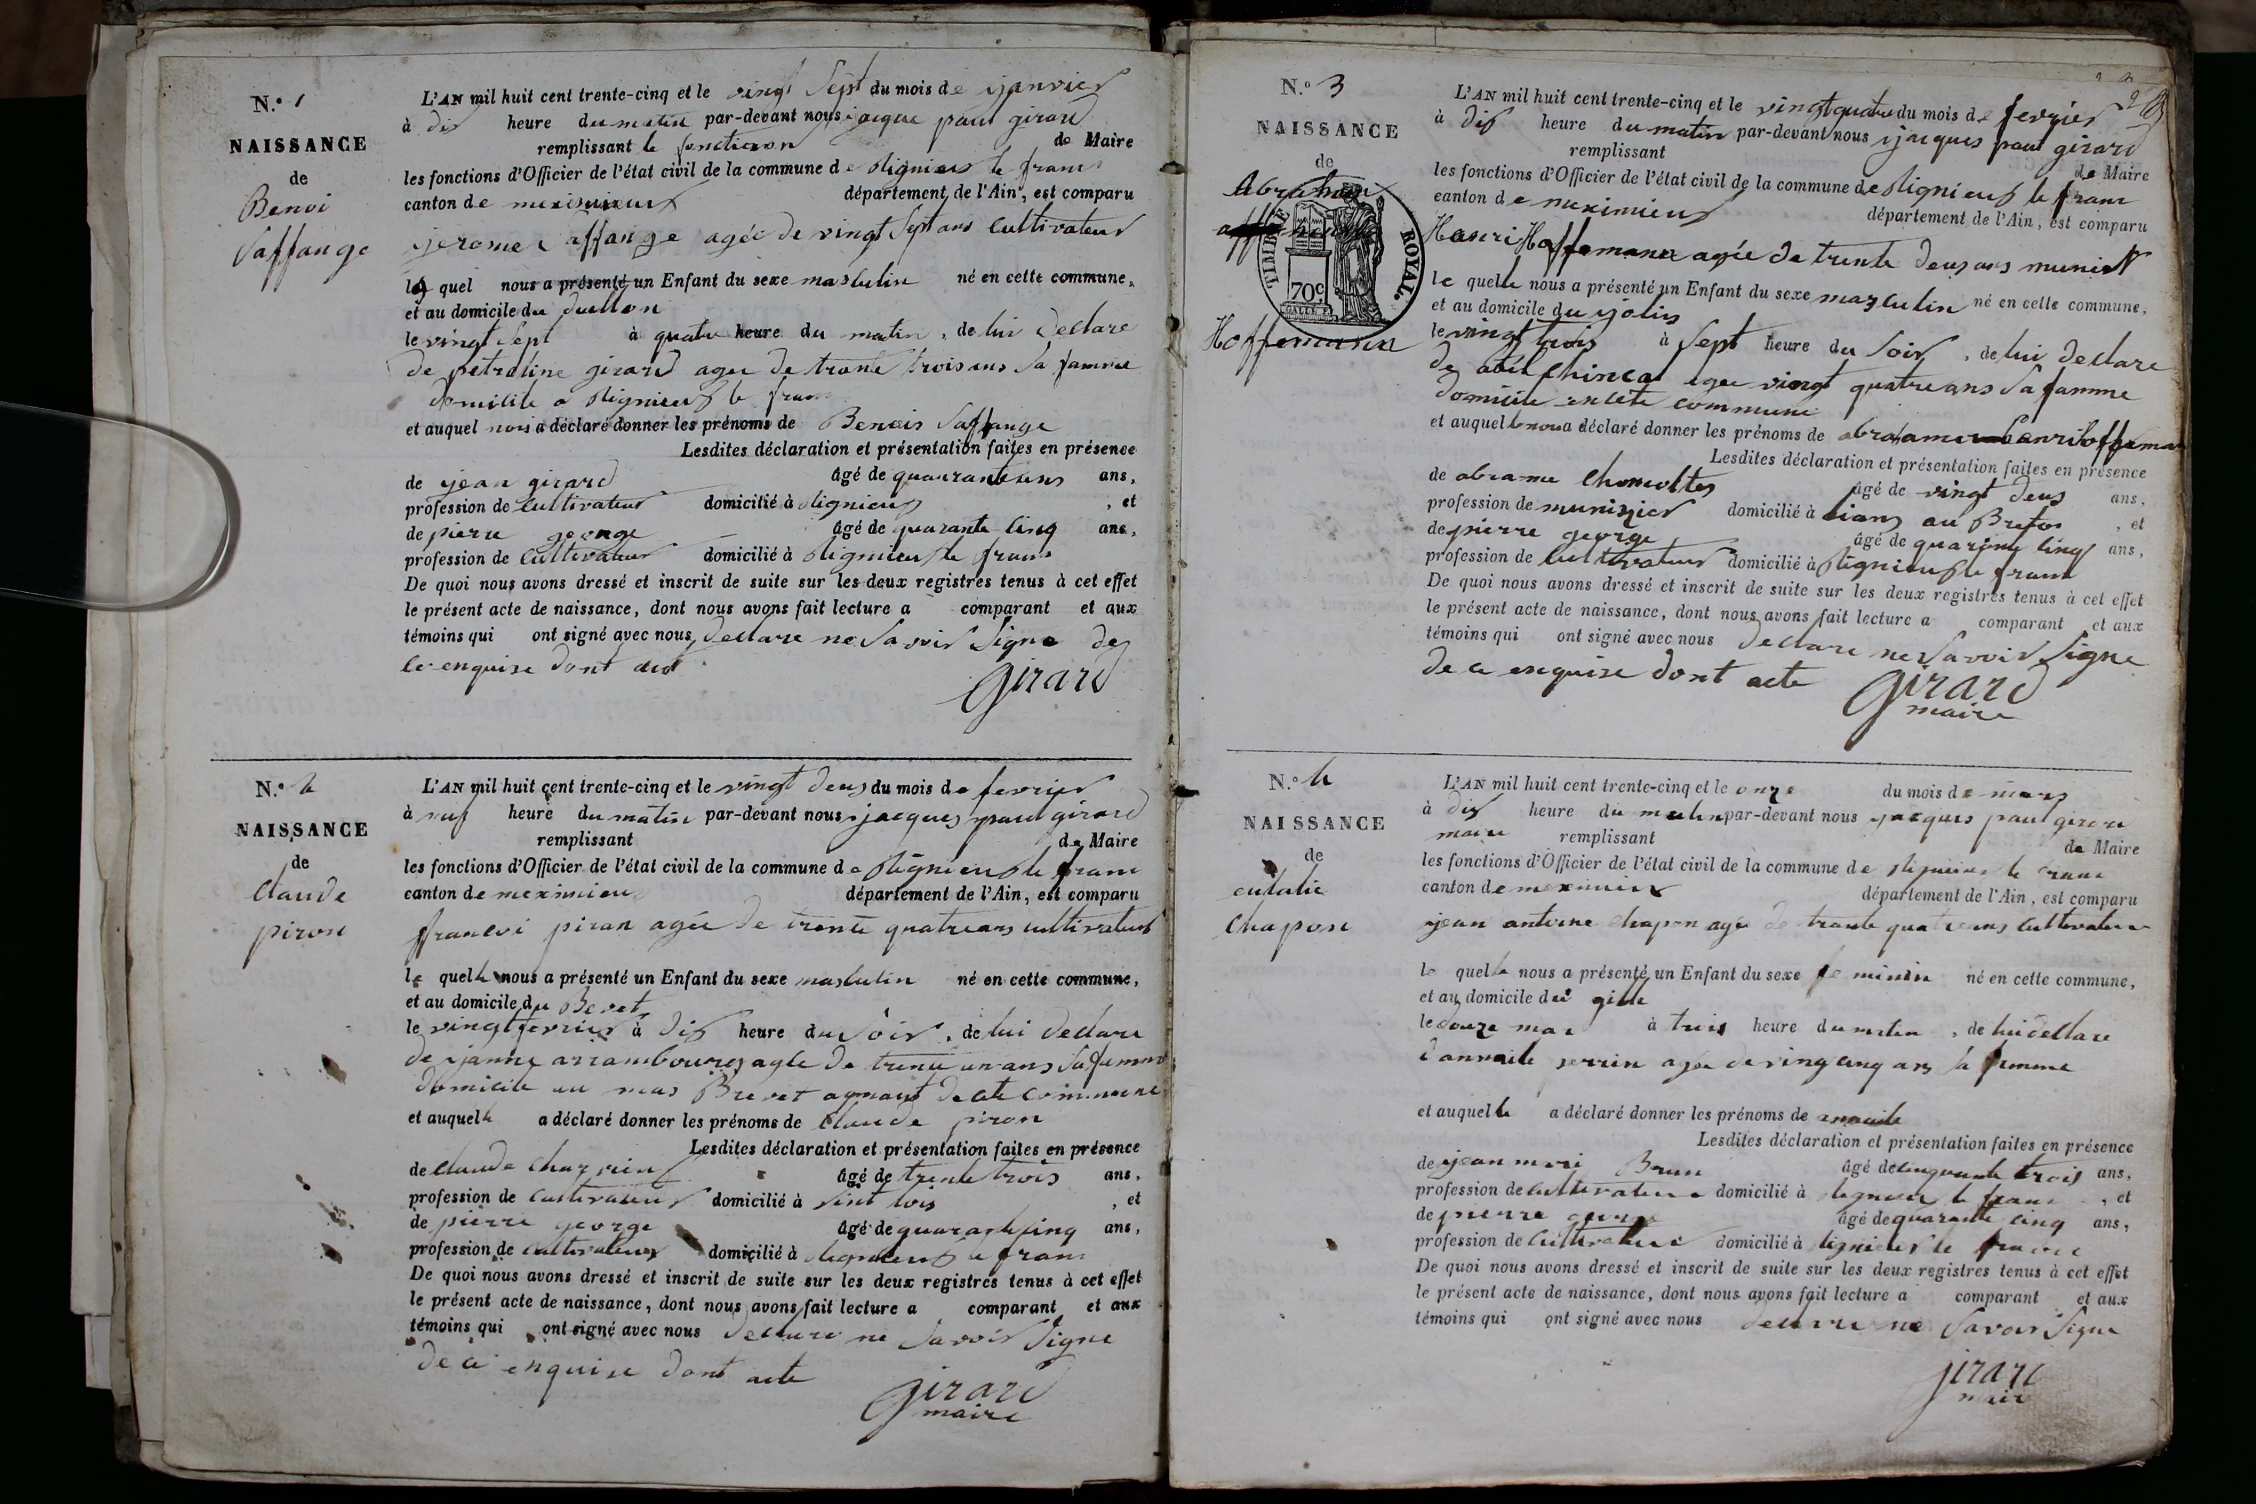 N.° 1
NAISSANCE
de
Benoi
Saffange
L'AN mil huit cent trente-cinq et le vingt Sept du mois de janvier
à dix heure du matin par-devant nous jacque paul girard
remplissant le fonction de Maire
les fonctions d'Officier de l'état civil de la commune de rignieus le franc
canton de meximieux département de l'Ain, est comparu
jerome Saffange agée de vingt Sept ans cultivateur
le quel nous a présenté un Enfant du sexe masculin né en cette commune,
et au domicile du
le vingt Sept à quatre heure du matin, de lui declare
de petroline girard agee de trante trois ans Sa famme
domicile a rignieux le franc
et auquel nous a déclaré donner les prénoms de Benois Saffange
Lesdites déclaration et présentation faites en présence
de jean girard âgé de quarante ans,
profession de cultivateur domicilié à rignieux, et
de pierre george âgé de quarante cinq ans,
profession de cultivateur domicilié à rignieux le franc
De quoi nous avons dressé et inscrit de suite sur les deux registres tenus à cet effet
le présent acte de naissance, dont nous avons fait lecture a comparant et aux
témoins qui ont signé avec nous declare ne Savoir Signe de
ce enquise dont act
Girard
N.° 2
NAISSANCE
de
Claude
piron
L'AN mil huit cent trente-cinq et le vingt deus du mois de fevrier
à neuf heure du matin par-devant nous jacques paul girard
remplissant de Maire
les fonctions d'Officier de l'état civil de la commune de rignieus le franc
canton de meximieu département de l'Ain, est comparu
francoi piron agée de trente quatre ans cultivateur
le quelle nous a présenté un Enfant du sexe masculin né en cette commune,
et au domicile du Bevet
le vingt fevrier à dix heure du soir, de lui declare
de janne arrambourg agée de trente un ans Sa famme
domicile au mas Brevet de cete commune
et auquelle a déclaré donner les prénoms de Claude piron
Lesdites déclaration et présentation faites en présence
de claude âgé de trente trois ans,
profession de cultivateur domicilié à, et
de pierre george âgé de quarante cinq ans,
profession de cultivateur domicilié à rignieux le franc
De quoi nous avons dressé et inscrit de suite sur les deux registres tenus à cet effet
le présent acte de naissance, dont nous avons fait lecture a comparant et aux
témoins qui ont signé avec nous declare ne Savoir Signe
de ce enquise dont acte
Girard
maire
N.° 3
NAISSANCE
de
Abraham
Hoffemann
TIMBRE ROYAL.
70c
L'AN mil huit cent trente-cinq et le vingt quatre du mois de fevrier
à dix heure du matin par-devant nous jacques paul girard
remplissant de Maire
les fonctions d'Officier de l'état civil de la commune de rignieux le franc
canton de meximieux département de l'Ain, est comparu
Hanri Hoffemann agée de trente deus ans
le quelle nous a présenté un Enfant du sexe masculin né en cette commune,
et au domicile du
le vingt trois à Sept heure du Soir, de lui declare
de agee vingt quatre ans Sa famme
domicile en cete commune
et auquel le nous a déclaré donner les prénoms de
Lesdites déclaration et présentation faites en présence
de abrame âgé de vingt deus ans,
profession de munisier domicilié à, et
de pierre george âgé de quarante cinq ans,
profession de cultivateur domicilié à rignieux le franc
De quoi nous avons dressé et inscrit de suite sur les deux registres tenus à cet effet
le présent acte de naissance, dont nous avons fait lecture a comparant et aux
témoins qui ont signé avec nous declare ne Savoir Signe
de ce enquise dont acte
Girard
maire
N.° 4
NAISSANCE
de
eulalie
Chapon
L'AN mil huit cent trente-cinq et le onze du mois de mars
à dix heure du matin par-devant nous jacques paul girard
maire remplissant de Maire
les fonctions d'Officier de l'état civil de la commune de rignieux le franc
canton de meximieux département de l'Ain, est comparu
jean antoine chapon agée de trante quatre ans cultivateur
le quelle nous a présenté un Enfant du sexe feminin né en cette commune,
et au domicile du
le douze mar à trois heure du matin, de lui declare
perrin agée de vingcinq ans sa femme
et auquelle a déclaré donner les prénoms de
Lesdites déclaration et présentation faites en présence
de jean mari Brun âgé de cinquante trois ans,
profession de cultivateur domicilié à rignieux le franc, et
de pierre george âgé de quarante cinq ans,
profession de cultivateur domicilié à rignieux le franc
De quoi nous avons dressé et inscrit de suite sur les deux registres tenus à cet effet
le présent acte de naissance, dont nous avons fait lecture a comparant et aux
témoins qui ont signé avec nous declare ne Savoir Signe
girard
maire